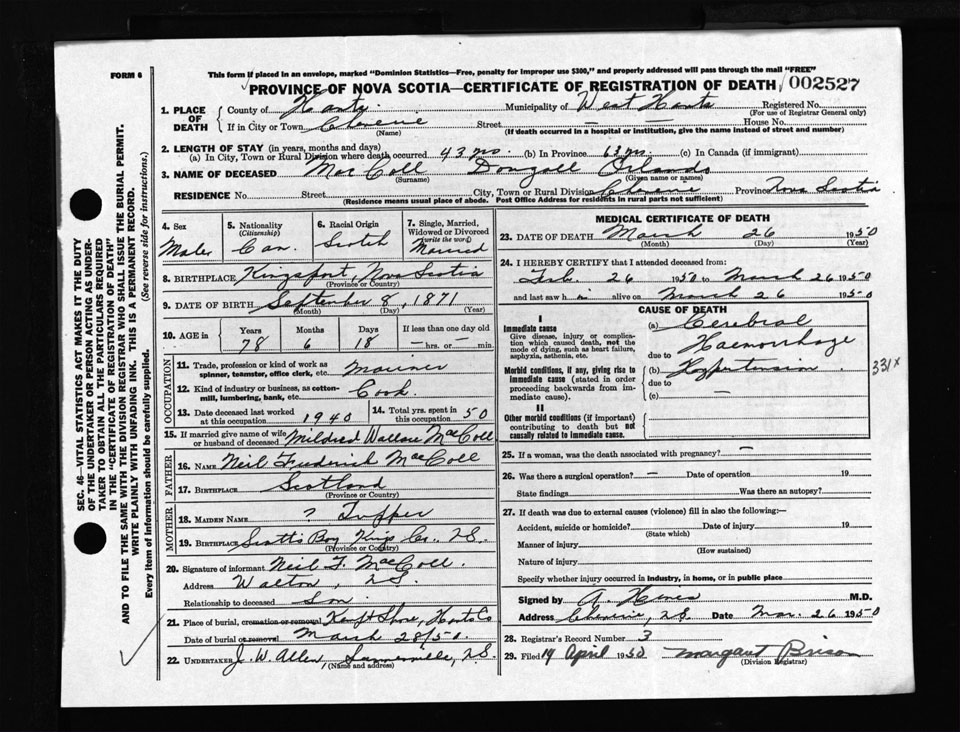 FORM 6
This form if placed in an envelope, marked "Dominion Statistics—Free, penalty for improper use $300," and properly addressed will pass through the mail "FREE"
PROVINCE OF NOVA SCOTIA—CERTIFICATE OF REGISTRATION OF DEATH
002527
1. PLACE OF DEATH
County of Hants Municipality of West Hants Registered No.
(For use of Registrar General only)
If in City or Town Cheverie Street — — House No.
(Name) (If death occurred in a hospital or institution, give the name instead of street and number)
2. LENGTH OF STAY (in years, months and days)
(a) In City, Town or Rural Division where death occurred 43 yrs. (b) In Province 63 yrs. (c) In Canada (if immigrant)
3. NAME OF DECEASED Mac Coll Dougall Orlando
(Surname) (Given name or names)
RESIDENCE No. Street City, Town or Rural Division Cheverie Province Nova Scotia
(Residence means usual place of abode. Post Office Address for residents in rural parts not sufficient)
4. Sex
Male
5. Nationality
(Citizenship)
Can.
6. Racial Origin
Scotch
7. Single, Married, Widowed or Divorced
(write the word)
Married
8. BIRTHPLACE Kingsport, Nova Scotia
(Province or Country)
9. DATE OF BIRTH September 8, 1871
(Month) (Day) (Year)
10. AGE in
Years Months Days If less than one day old
78 6 18 — hrs. or — min.
OCCUPATION
11. Trade, profession or kind of work as spinner, teamster, office clerk, etc. Mariner
12. Kind of industry or business, as cotton-mill, lumbering, bank, etc. Cook
13. Date deceased last worked at this occupation 1940
14. Total yrs. spent in this occupation 50
15. If married give name of wife or husband of deceased Mildred Wallace MacColl
FATHER
16. NAME Neil Frederick MacColl
17. BIRTHPLACE Scotland
(Province or Country)
MOTHER
18. MAIDEN NAME ? Tupper
19. BIRTHPLACE Scott's Bay Kings Co., N.S.
(Province or Country)
20. Signature of informant Neil F. MacColl.
Address Walton, N.S.
Relationship to deceased Son.
21. Place of burial, cremation or removal Kempt Shore, Hants Co
Date of burial or removal March 28/50.
22. UNDERTAKER J. W. Allen Summerville, N.S.
(Name and address)
MEDICAL CERTIFICATE OF DEATH
23. DATE OF DEATH March 26 1950
(Month) (Day) (Year)
24. I HEREBY CERTIFY that I attended deceased from:
Feb. 26 1950 to March 26 1950
and last saw h im alive on March 26 1950
CAUSE OF DEATH
I
Immediate cause
Give disease, injury or complication which caused death, not the mode of dying, such as heart failure, asphyxia, asthenia, etc.
(a) Cerebral
Haemorrhage
due to
Morbid conditions, if any, giving rise to immediate cause (stated in order proceeding backwards from immediate cause).
(b) Hypertension.
due to
(c) —
331x
II
Other morbid conditions (if important) contributing to death but not causally related to immediate cause.
25. If a woman, was the death associated with pregnancy? —
26. Was there a surgical operation? — Date of operation 19
State findings — Was there an autopsy?
27. If death was due to external causes (violence) fill in also the following:—
Accident, suicide or homicide? Date of injury 19
(State which)
Manner of injury
(How sustained)
Nature of injury
Specify whether injury occurred in industry, in home, or in public place
Signed by A. Hines M.D.
Address Cheverie, N.S. Date Mar. 26 1950
28. Registrar's Record Number 3
29. Filed 14 April 1950 Margaret Brison
(Division Registrar)
SEC. 46—VITAL STATISTICS ACT MAKES IT THE DUTY
OF THE UNDERTAKER OR PERSON ACTING AS UNDER-
TAKER TO OBTAIN ALL THE PARTICULARS REQUIRED
IN THE "CERTIFICATE OF REGISTRATION OF DEATH"
AND TO FILE THE SAME WITH THE DIVISION REGISTRAR WHO SHALL ISSUE THE BURIAL PERMIT.
WRITE PLAINLY WITH UNFADING INK. THIS IS A PERMANENT RECORD.
Every item of information should be carefully supplied. (See reverse side for instructions.)